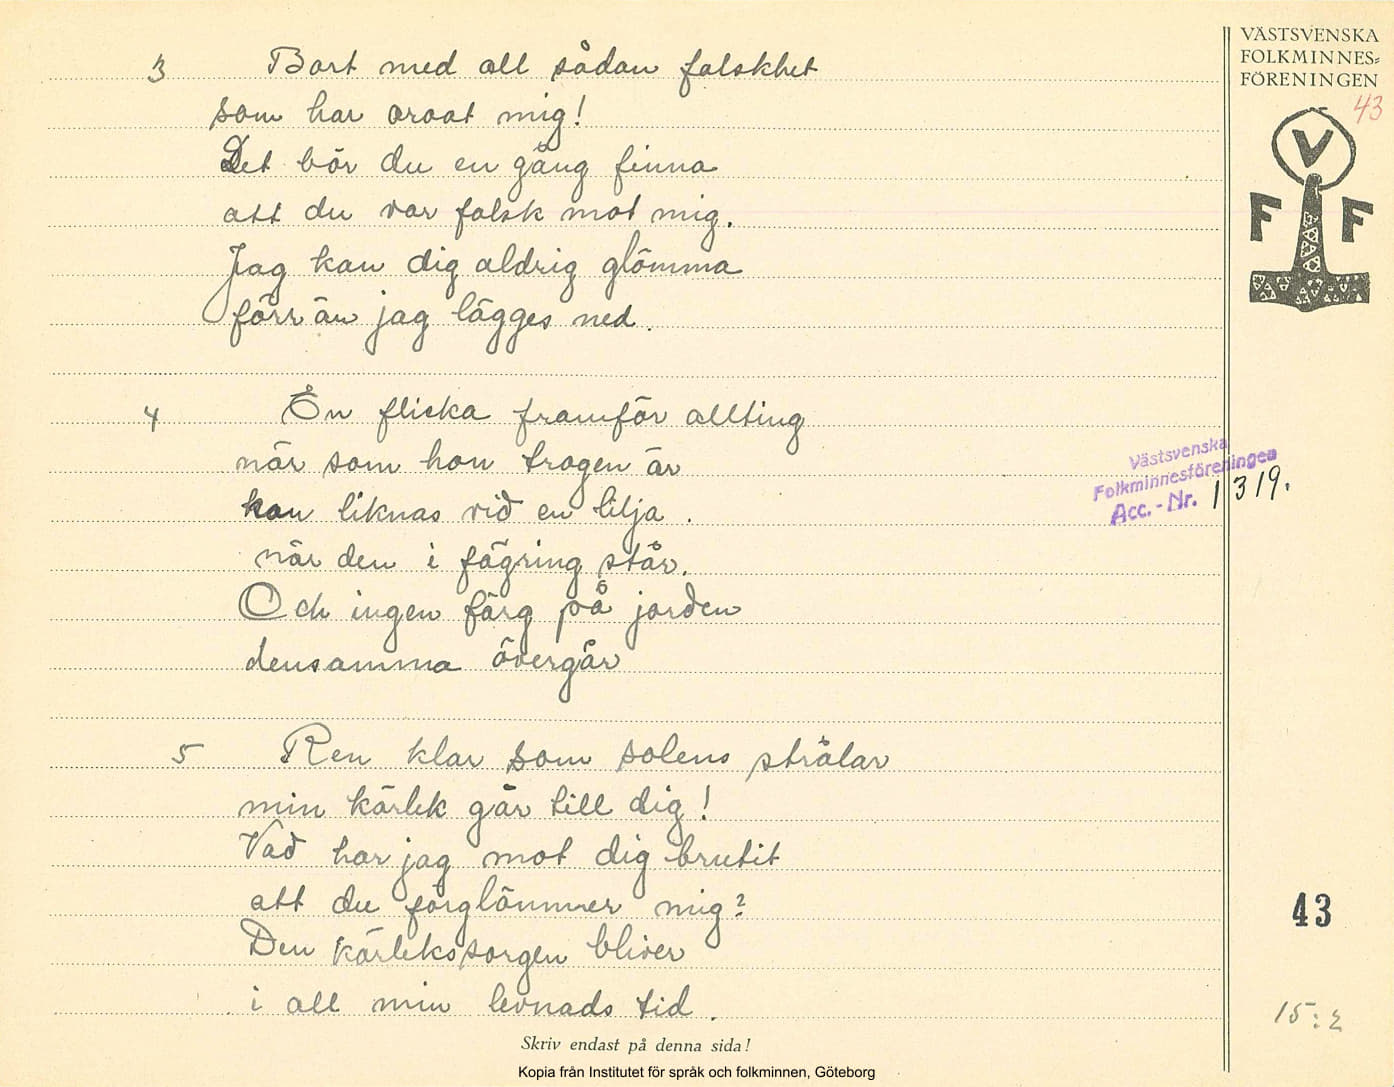 VÄSTSVENSKA
FOLKMINNES=
FÖRENINGEN
43
V
F F
3 Bort med all sådan falskhet
som har oroat mig!
Det bör du en gång finna
att du var falsk mot mig.
Jag kan dig aldrig glömma
förr än jag lägges ned.
4 En flicka framför allting
när som hon trogen är
kan liknas vid en lilja.
när den i fägring står.
Och ingen färg på jorden
densamma övergår
Västsvenska
Folkminnesföreningen
Acc.-Nr. 1319.
5 Ren klar som solens strålar
min kärlek går till dig!
Vad har jag mot dig brutit
att du förglömmer mig?
Den kärlekssorgen bliver
i all min levnads tid.
43
15:2
Skriv endast på denna sida!
Kopia från Institutet för språk och folkminnen, Göteborg